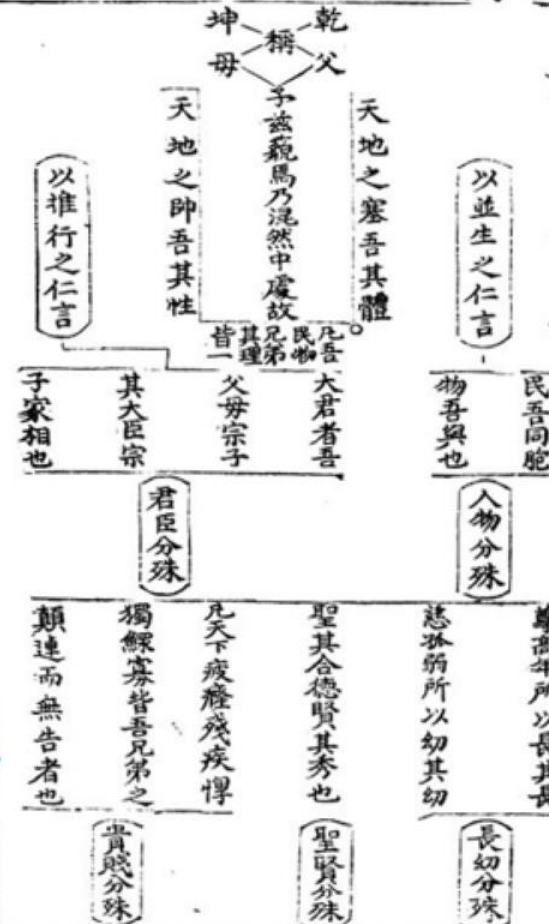 乾
父
稱
坤
母
天地之塞吾其體
予茲藐焉乃混然中處故
天地之帥吾其性
凡吾
民物
兄弟
其理
皆一
以並生之仁言
以推行之仁言
民吾同胞
物吾與也
大君者吾
父母宗子
其大臣宗
子家相也
人物分殊
君臣分殊
高年所以長其長
慈孤弱所以幼其幼
聖其合德賢其秀也
凡天下疲癃殘疾惸
獨鰥寡皆吾兄弟之
顛連而無告者也
長幼分殊
聖賢分殊
貴賤分殊